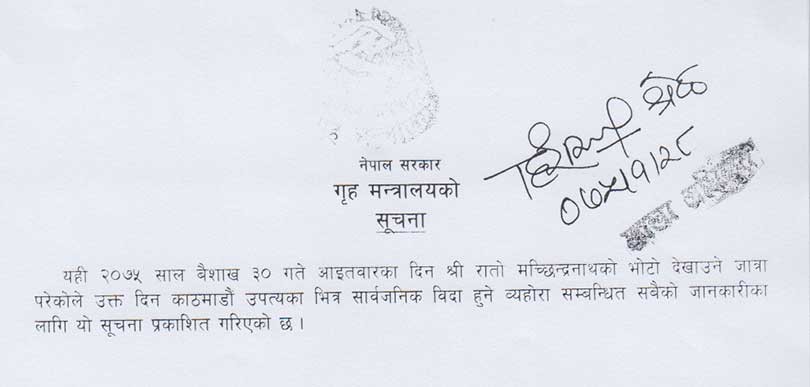 नेपाल सरकार
गृह मन्त्रालयको
सूचना
श्रेष्ठ
०७५।१।२८
यही २०७५ साल बैशाख ३० गते आइतवारका दिन श्री रातो मच्छिन्द्रनाथको भोटो देखाउने जात्रा
परेकोले उक्त दिन काठमाडौं उपत्यका भित्र सार्वजनिक विदा हुने व्यहोरा सम्बन्धित सबैको जानकारीका
लागि यो सूचना प्रकाशित गरिएको छ ।